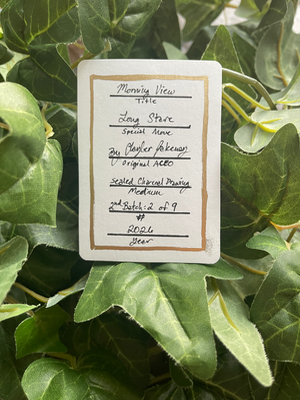 Morning View
Title
Long Stare
Special Move
By
Original ACEO
Sealed Charcoal Drawing
Medium
2nd Batch: 2 of 9
#
2026
Year